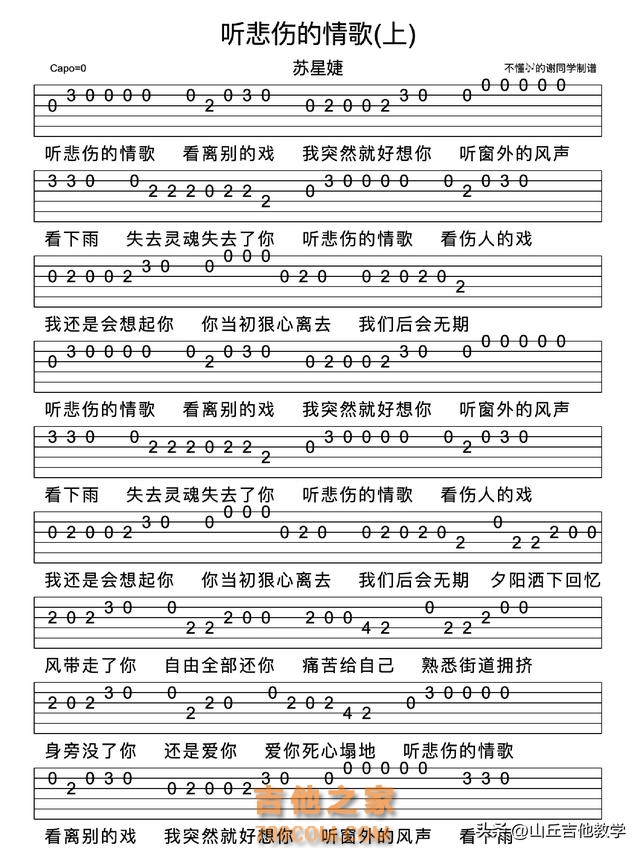 听悲伤的情歌(上)
Capo=0 苏星婕 不懂♪的谢同学制谱
0 3 0 0 0 0 0 2 0 3 0 0 2 0 0 2 3 0 0 0 0 0 0 0
听悲伤的情歌 看离别的戏 我突然就好想你 听窗外的风声
3 3 0 0 2 2 2 0 2 2 2 0 3 0 0 0 0 0 2 0 3 0
看下雨 失去灵魂失去了你 听悲伤的情歌 看伤人的戏
0 2 0 0 2 3 0 0 0 0 0 0 2 0 0 2 0 2 0 2
我还是会想起你 你当初狠心离去 我们后会无期
0 3 0 0 0 0 0 2 0 3 0 0 2 0 0 2 3 0 0 0 0 0 0 0
听悲伤的情歌 看离别的戏 我突然就好想你 听窗外的风声
3 3 0 0 2 2 2 0 2 2 2 0 3 0 0 0 0 0 2 0 3 0
看下雨 失去灵魂失去了你 听悲伤的情歌 看伤人的戏
0 2 0 0 2 3 0 0 0 0 0 0 2 0 0 2 0 2 0 2 0 2 2 2 0 0
我还是会想起你 你当初狠心离去 我们后会无期 夕阳洒下回忆
2 0 2 3 0 0 2 2 2 0 0 2 0 0 4 2 0 2 2 2 0 0
风带走了你 自由全部还你 痛苦给自己 熟悉街道拥挤
2 0 2 3 0 0 2 2 0 0 2 0 2 4 2 0 3 0 0 0 0
身旁没了你 还是爱你 爱你死心塌地 听悲伤的情歌
0 2 0 3 0 0 2 0 0 2 3 0 0 0 0 0 0 0 3 3 0
看离别的戏 我突然就好想你 听窗外的风声 看下雨
吉他之家
798COM.COM
头条@山丘吉他教学